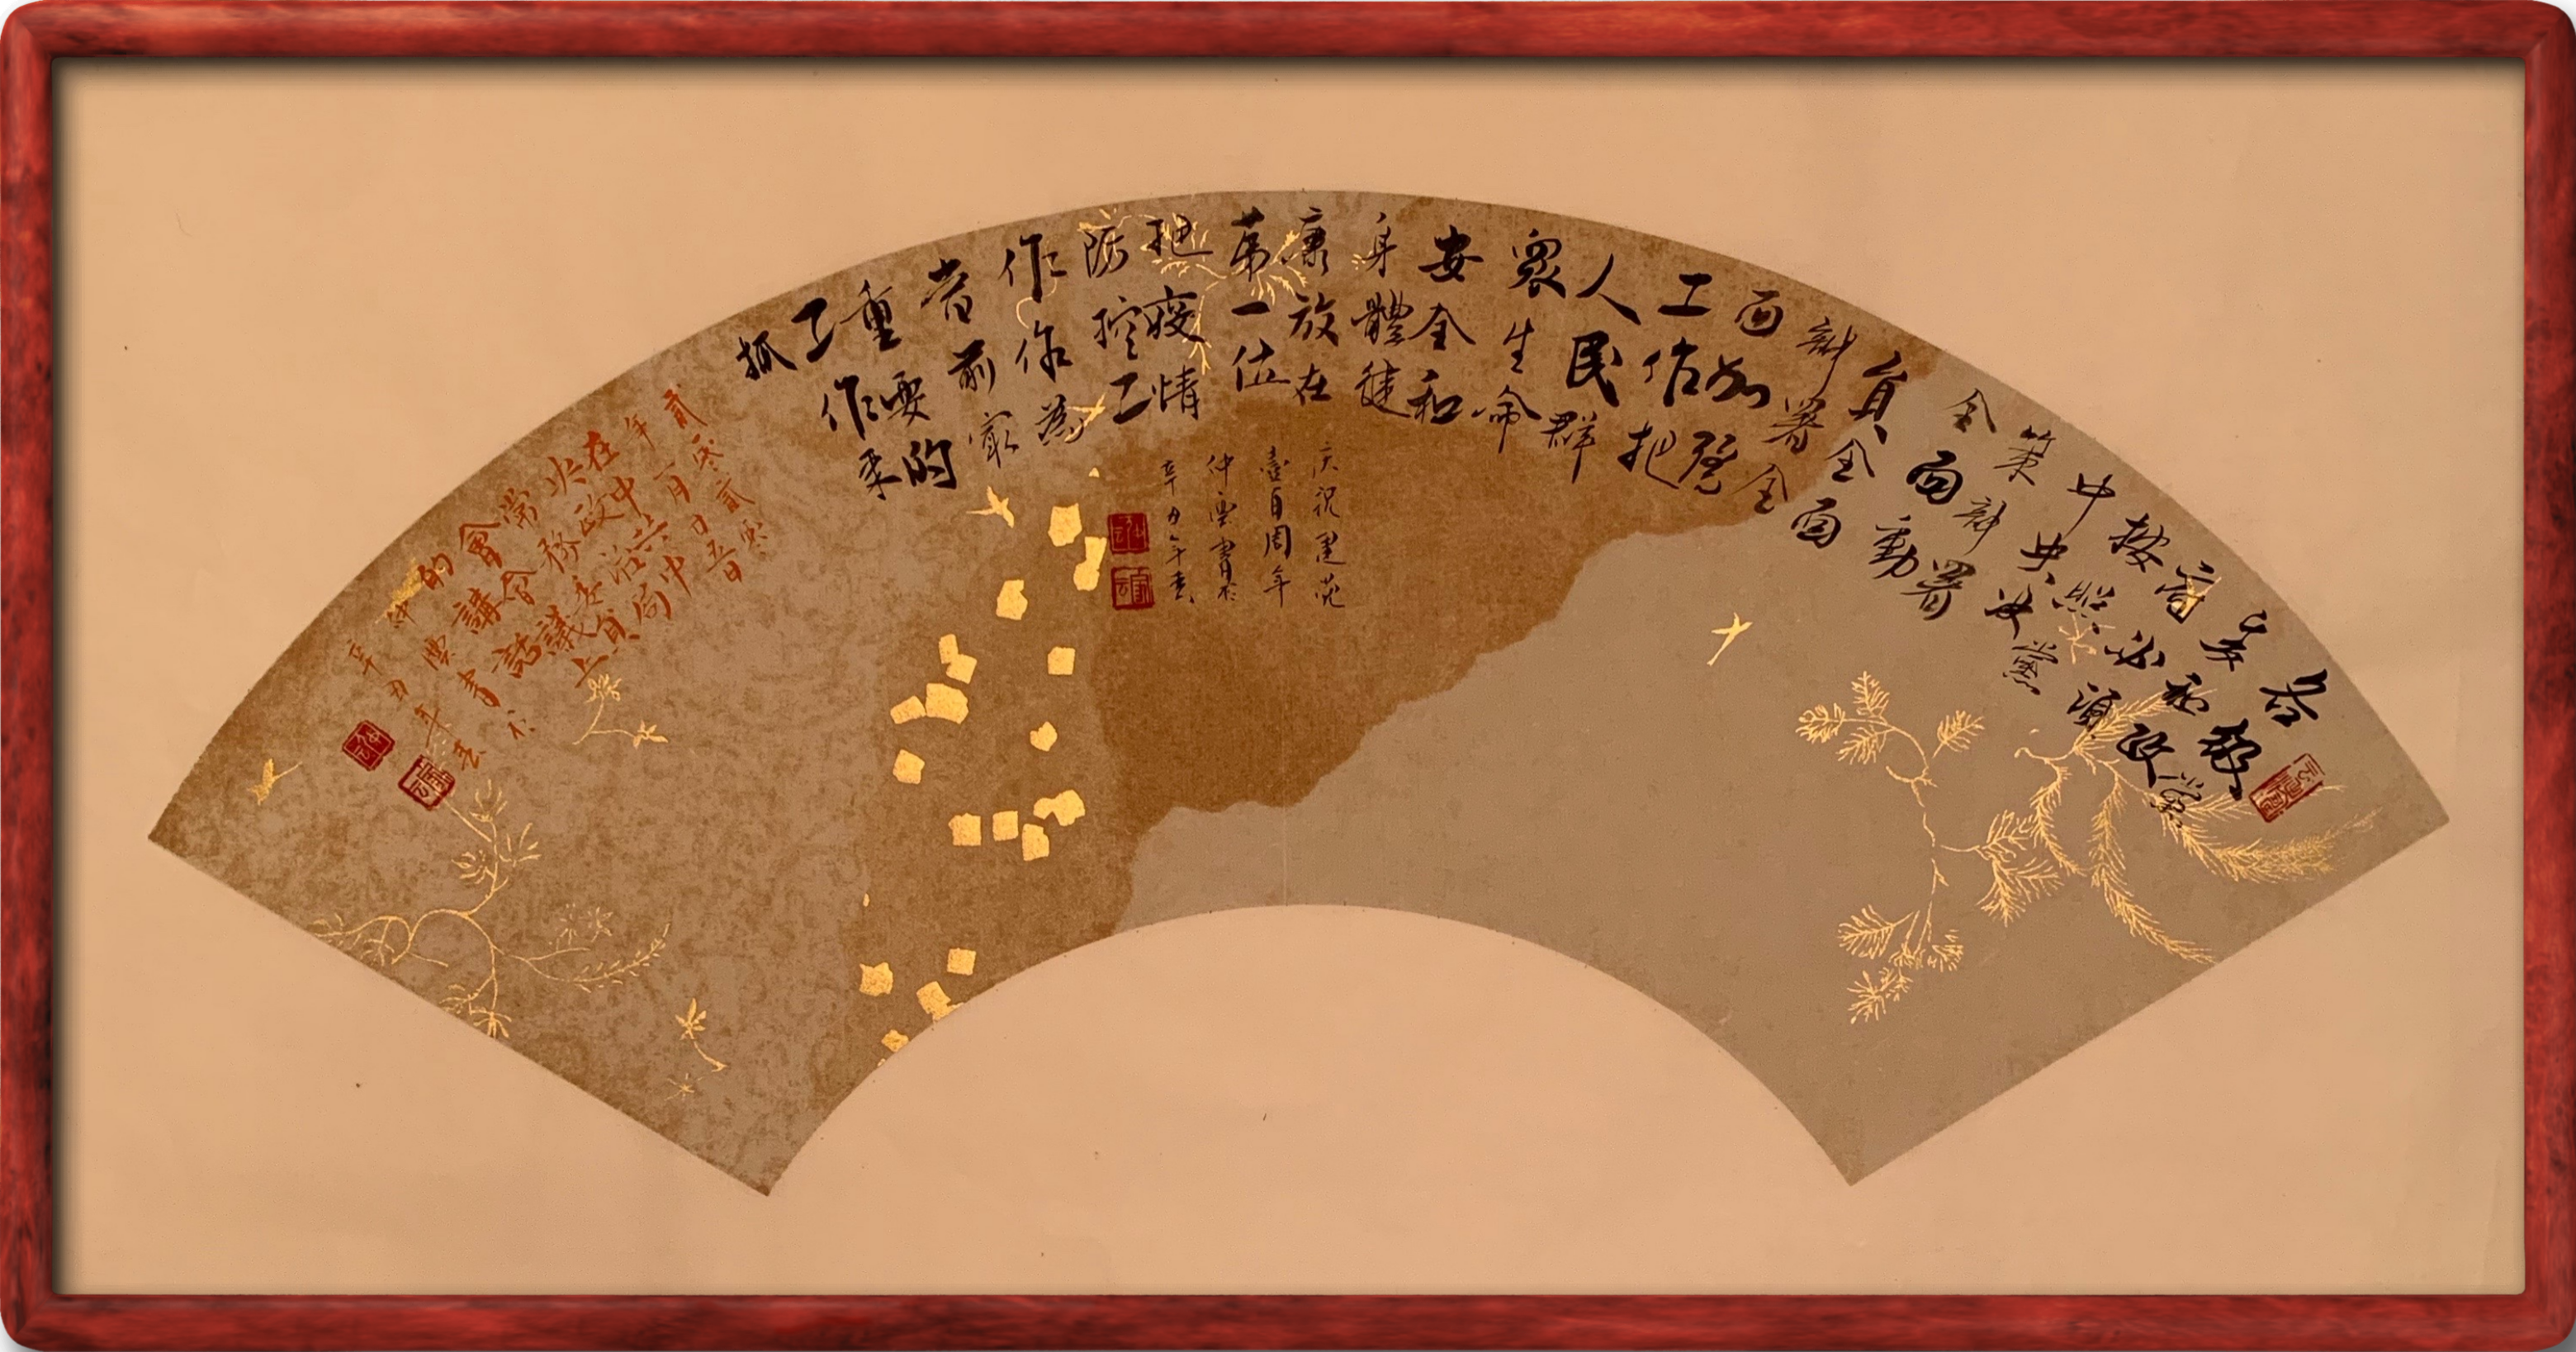 各級黨
委和政
府必須
按照黨
中央決
策部署
全面動
員全面
部署全
面加强
工作把
人民群
眾生命
安全和
身體健
康放在
第一位
把疫情
防控工
作作為
當前最
重要的
工作來
抓
庆祝建党
壹百周年
仲雲書於
辛丑年春
貳零貳零
年一月廿五日
在中共中
央政治局
常務委員
會會議上
的講話
仲雲書於
辛丑年春